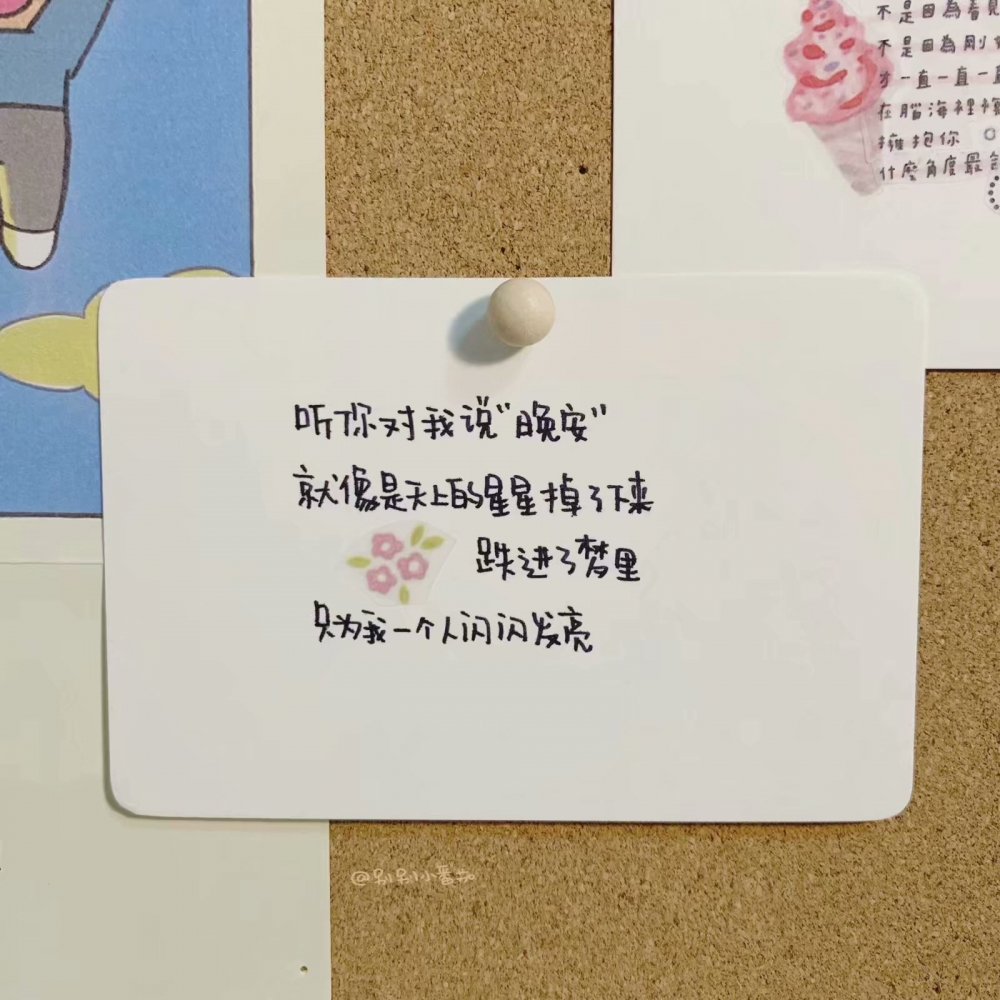 不是因為看見
不是因為剛好
才一直一直一直
在腦海裡複
擁抱你
什麼角度最
听你对我说“晚安”
就像是天上的星星掉了下来
跌进了梦里
只为我一个人闪闪发亮
@别别小番茄